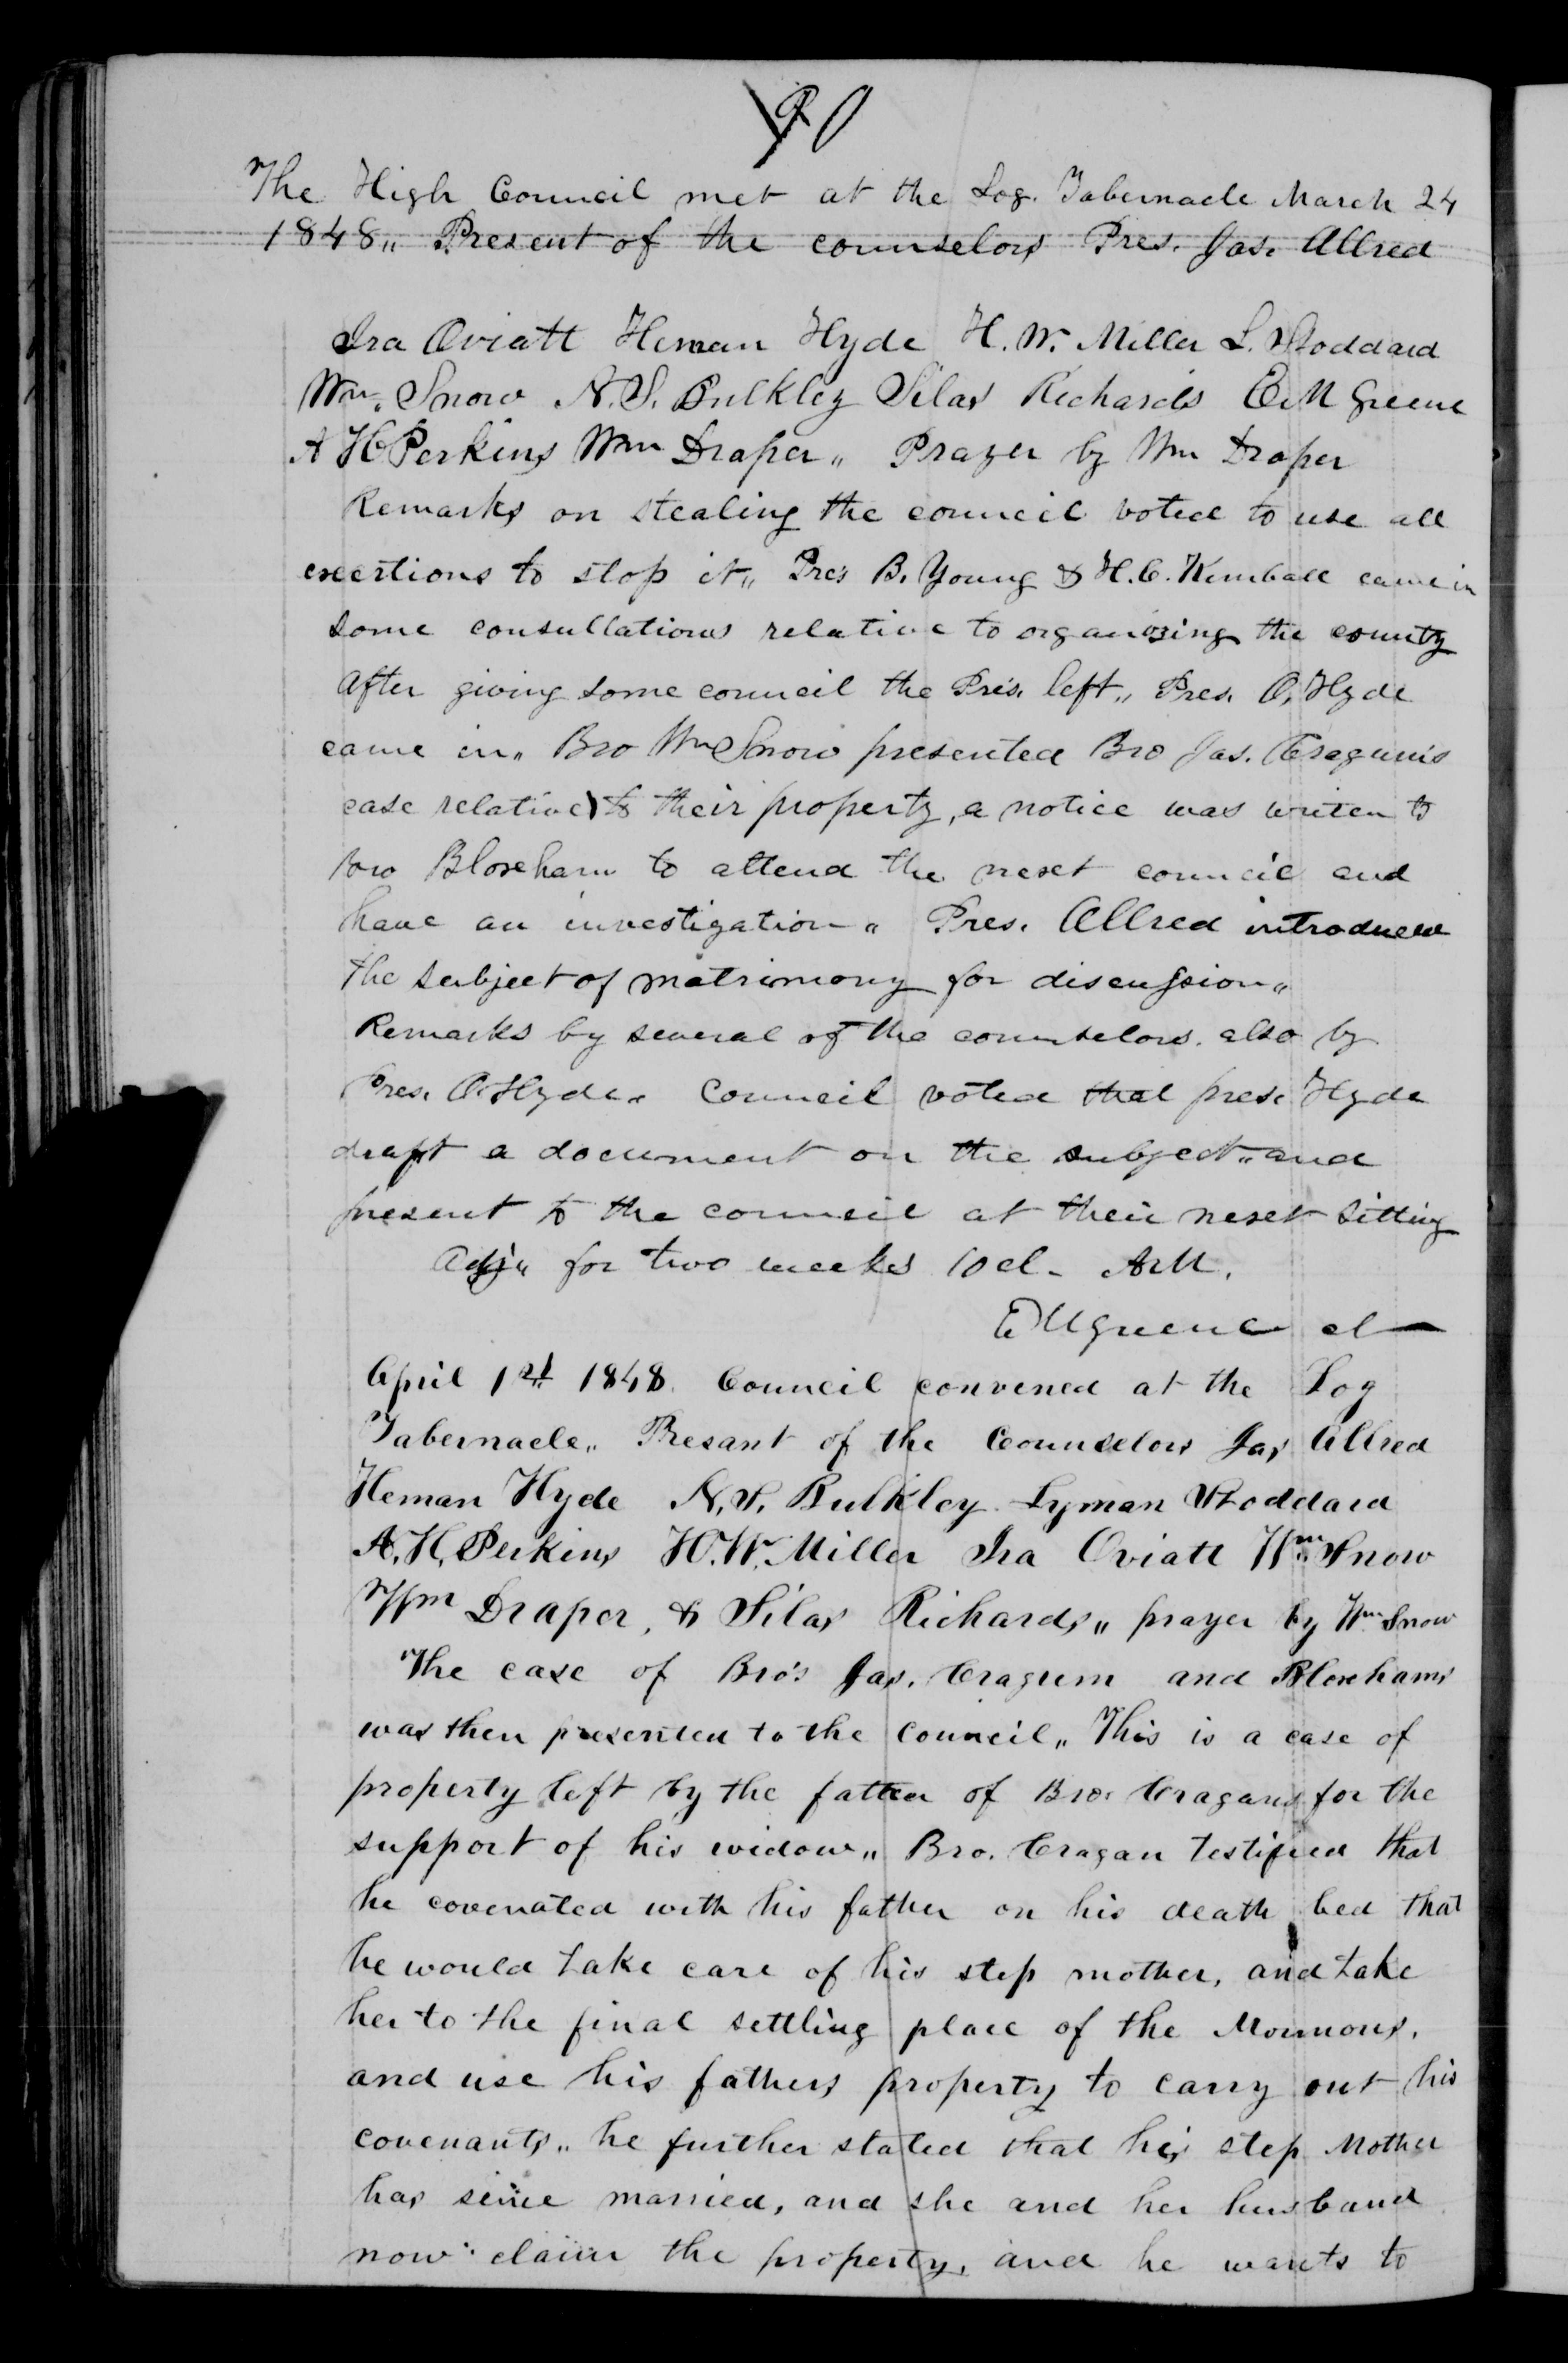 90
The High Council met at the Log. Tabernacle March 24
1848„ Present of the counselors Pres. Jas. Allred
Ira Oviatt Heman Hyde H. W. Miller L. Stoddard
Wm. Snow N. S. Bulkley Silas Richards E. M Greene
A H Perkins Wm Draper„ Prayer by Wm Draper
Remarks on stealing the council voted to use all
exertions to stop it„ Pres B. Young & H. C. Kimball came in
some consultations relative to organizing the county
After giving some council the Pres. left„ Pres. O. Hyde
came in„ Bro Wm Snow presented Bro Jas. Craguns
case relative to their property, a notice was writen to
bro Bloxham to attend the next council and
have an investigation„ Pres. Allred introduced
the subject of matrimony for discussion„
Remarks by several of the counselors. also by
Pres. O. Hyde„ Council voted that pres. Hyde
draft a document on the subject„ and
present to the council at their next sitting
Adj„ for two weeks 10 cl. A M.
E M Greene cl
April 1st 1848. Council convened at the Log
Tabernacle„ Presant of the Counselors Jas Allred
Heman Hyde N. S. Bulkley Lyman Stoddard
A. H. Perkins H. W. Miller Ira Oviatt Wm Snow
Wm Draper, & Silas Richards„ prayer by Wm Snow
The case of Bro's Jas. Cragum and Bloxhams
was then presented to the Council„ This is a case of
property left by the father of Bro. Cragans for the
support of his widow„ Bro. Cragan testified that
he covenated with his father on his death bed that
he would take care of his step mother, and take
her to the final settling place of the Mormons.
and use his fathers property to carry out his
covenants„ he further stated that his step Mother
has since married, and she and her husband
now claim the property, and he wants to